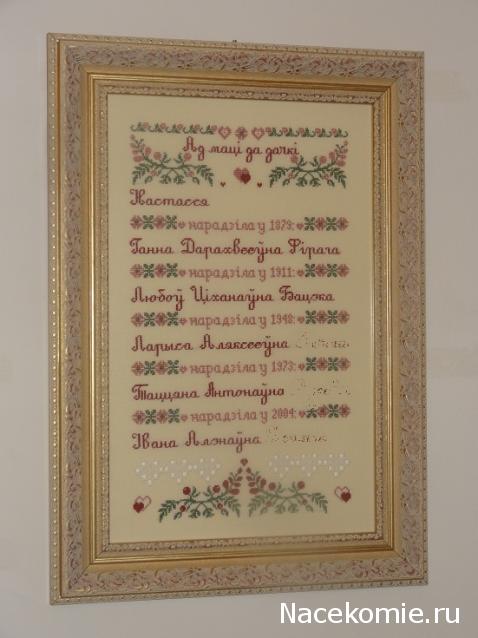 Ад маці да дачкі
Настасся
нарадзіла у 1879:
Ганна Дарахвееўна Фірага
нарадзіла у 1911:
Любоў Ціханаўна Бацэка
нарадзіла у 1948:
Ларыса Аляксееўна
нарадзіла у 1973:
Таццяна Антонаўна
нарадзіла у 2004:
Івана Алэнаўна
Nacekomie.ru